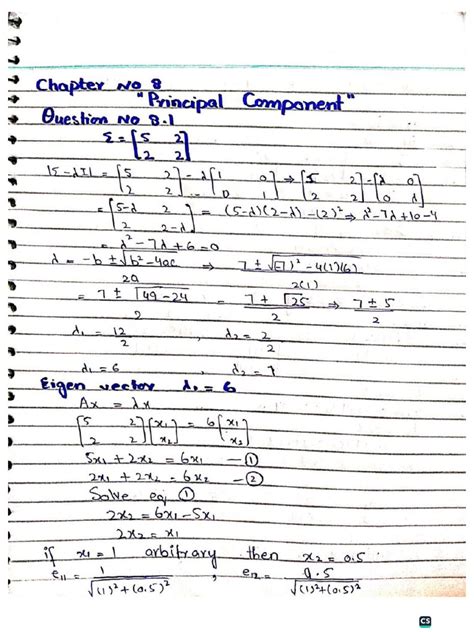 Chapter No 8
"Principal Component"
Question No 8.1
Σ = [5 2
2 2]
|S-λI| = [5 2 - λ[1 0 ⇒ [5 2 - [λ 0
2 2] 0 1] 2 2] 0 λ]
= [5-λ 2 = (5-λ)(2-λ) - (2)² ⇒ λ²-7λ+10-4
2 2-λ]
= λ²-7λ+6=0
λ = -b ± √b²-4ac ⇒ 7 ± √(-7)²-4(1)(6)
2a 2(1)
= 7 ± √49-24 = 7 ± √25 ⇒ 7 ± 5
2 2 2
λ₁ = 12 , λ₂ = 2
2 2
λ₁ = 6 , λ₂ = 1
Eigen vector λ₁ = 6
Ax = λx
[5 2 [x₁ = 6 [x₁
2 2] x₂] x₂]
5x₁ + 2x₂ = 6x₁ — ①
2x₁ + 2x₂ = 6x₂ — ②
Solve eq ①
2x₂ = 6x₁ - 5x₁
2x₂ = x₁
if x₁ = 1 arbitrary then x₂ = 0.5
e₁₁ = 1 , e₁₂ = 0.5
√(1)²+(0.5)² √(1)²+(0.5)²
CS